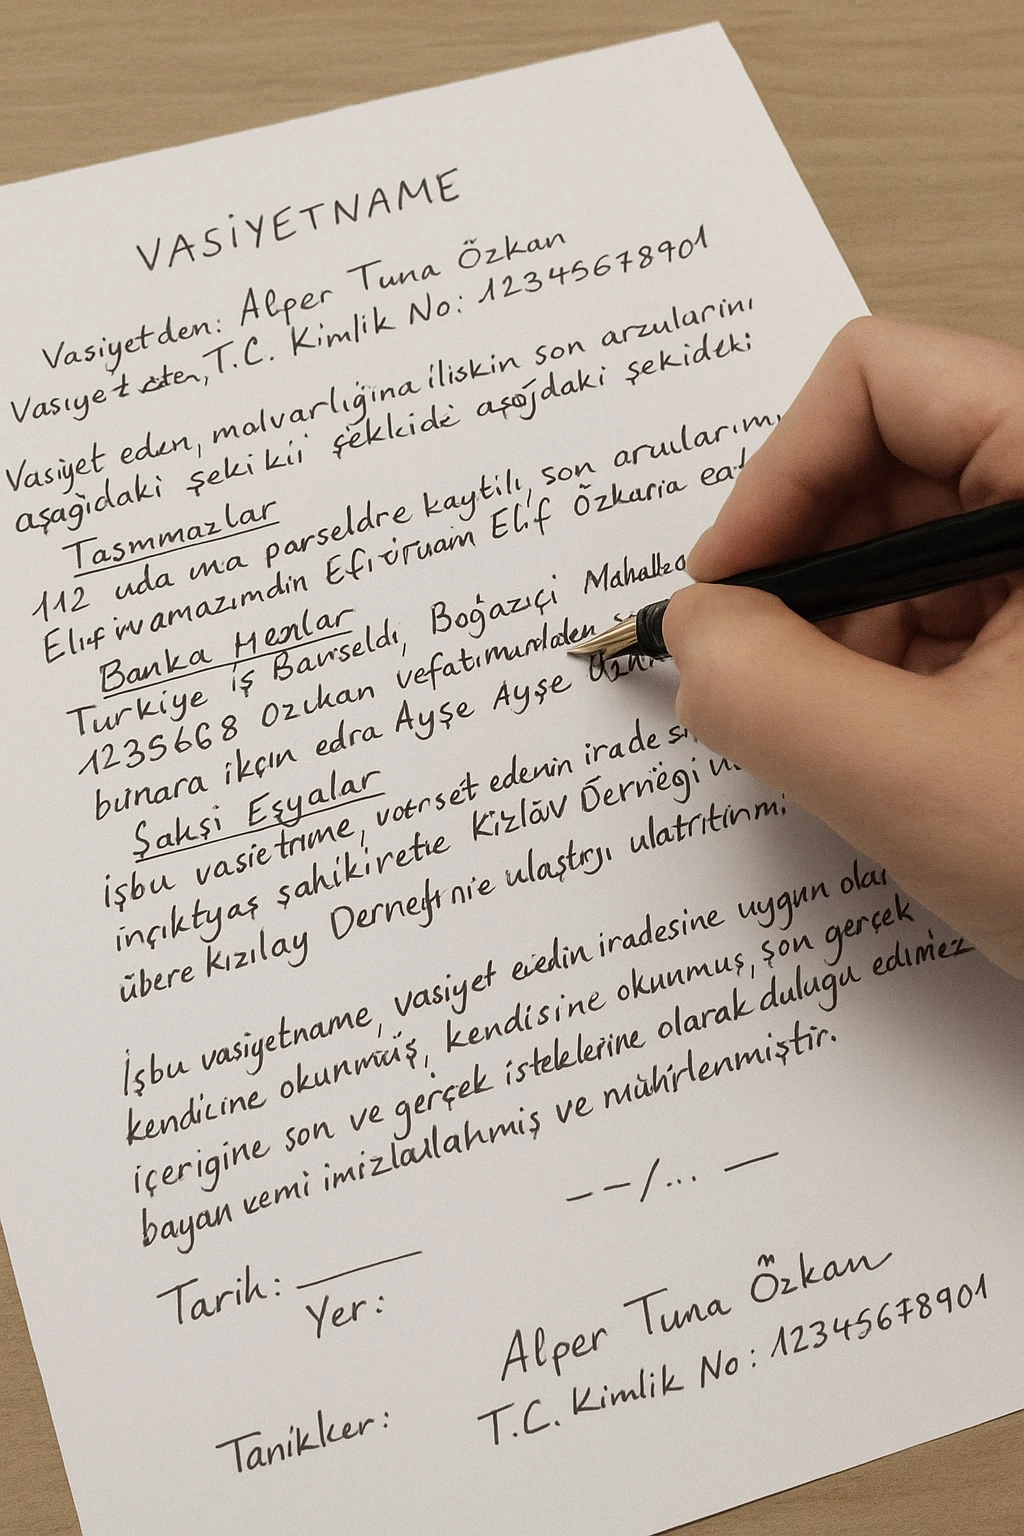 VASİYETNAME
Vasiyetden: Alper Tuna Özkan
Vasiyet eten, T.C. Kimlik No: 12345678901
Vasiyet eden, malvarlığina iliskin son arzularını
aşağıdaki şekikii şekkide aşağdaki şekideki
Tasmmazlar
112 uda ma parseldre kaytili, son arulların
Elifivamazımdin Elif Özkaria
Banka Heslar
Turkiye iş Bavrseldı, Boğazıçi
1235668 Ozıkan
bunara ikçın edra Ayşe Ayşe
Şakşi Eşyalar
işbu vasietnıme, edenin irade
inçıktyaş şahikiretie Kizlav Derneği
übere Kızılay ulaştırjı
İşbu vasiyetname, vasiyet evedin iradesine uygun
kendicine okunmuüş, kendisine okunmuş, şon gerçek
içerigine son ve gerçek isteklerine olarak dulugu edimez
bayan vemi ve mühirlenmiştir.
– – / ... —
Tarih: ____
Yer:
Alper Tuna Özkan
T.C. Kimlik No: 12345678901
Tanikker: